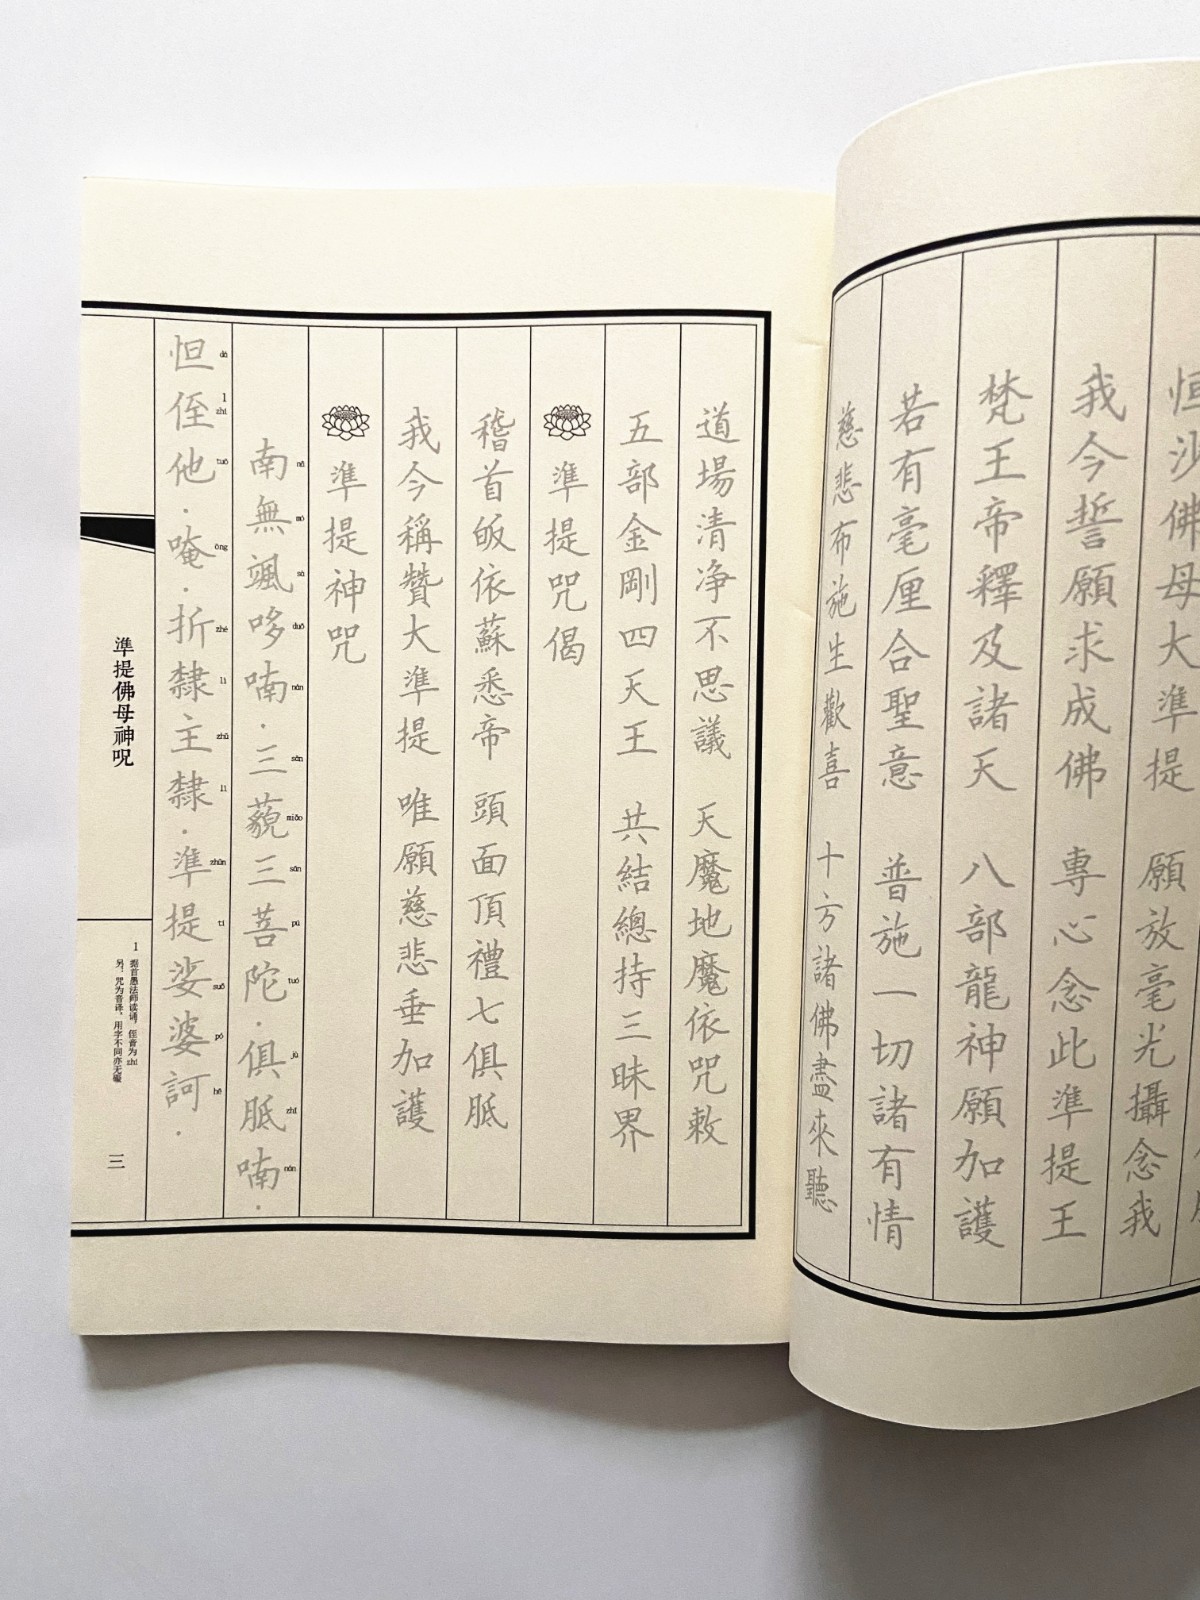 恒沙佛母大準提 願放毫光攝念我
我今誓願求成佛 專心念此準提王
梵王帝釋及諸天 八部龍神願加護
若有毫厘合聖意 普施一切諸有情
慈悲布施生歡喜 十方諸佛盡來聽
道場清净不思議 天魔地魔依咒敕
五部金剛四天王 共結總持三昧界
準提咒偈
稽首皈依蘇悉帝 頭面頂禮七俱胝
我今稱贊大準提 唯願慈悲垂加護
準提神咒
南無颯哆喃．三藐三菩陀．俱胝喃．
nā mó sà duō nán sān miǎo sān pú tuó jù zhī nán
怛侄他．唵．折隸主隸．準提娑婆訶．
dá zhì tuō ōng zhé lì zhǔ lì zhǔn tí suō pó hē
1
準提佛母神呪
1 据首愚法师读诵，侄音为zhì
另，咒为音译，用字不同亦无碍
三